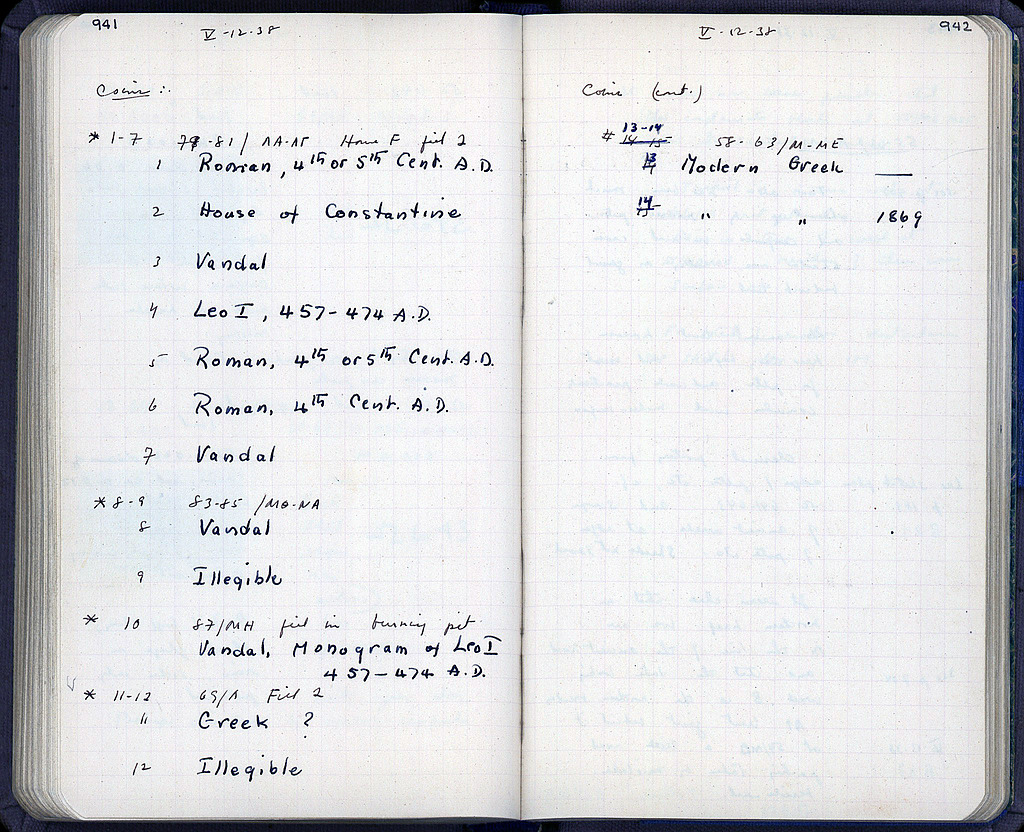 941
V-12-38
Coins :.
* 1-7 78-81/ AA-AF House F fill 2
1 Roman, 4th or 5th Cent. A.D.
2 House of Constantine
3 Vandal
4 Leo I, 457-474 A.D.
5 Roman, 4th or 5th Cent. A.D.
6 Roman, 4th Cent. A.D.
7 Vandal
* 8-9 83-85 /MO-NA
8 Vandal
9 Illegible
* 10 87/MH fill in burning pit
Vandal, Monogram of Leo I
457-474 A.D.
* 11-12 69/A Fill 2
11 Greek ?
12 Illegible
942
V-12-38
Coins (cont.)
# 13-14 14-15 58-63/M-ME
13 Modern Greek —
14 15 " " 1869